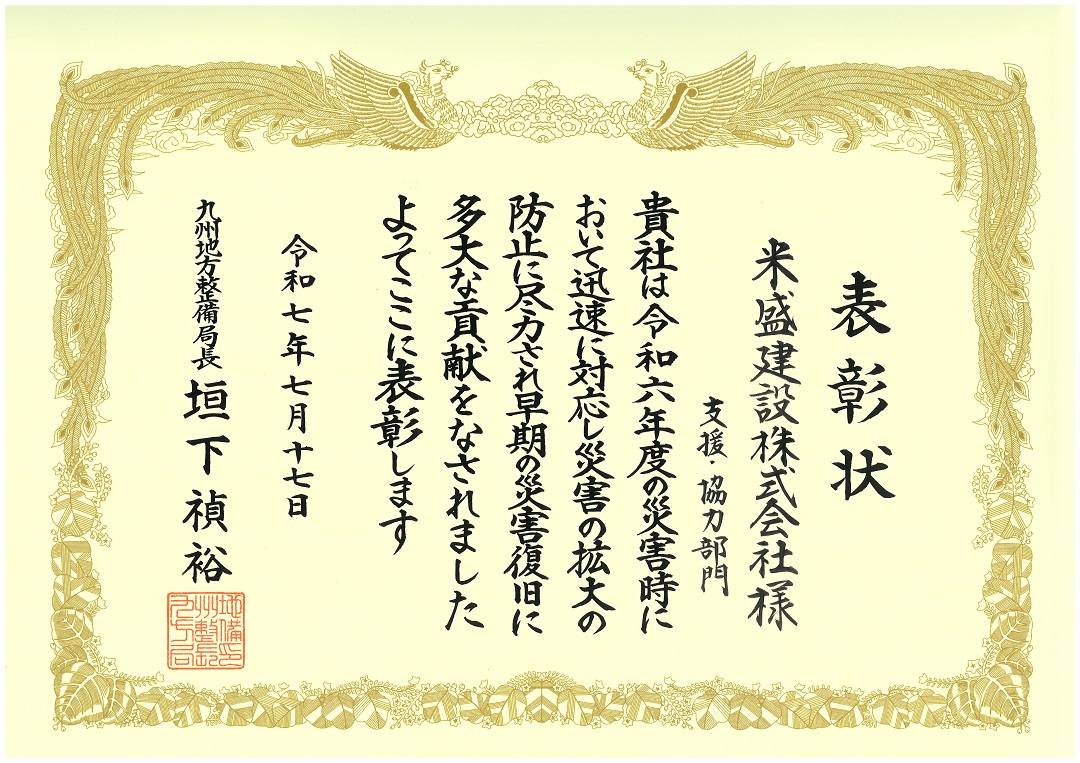 表彰状
米盛建設株式会社様
支援・協力部門
貴社は令和六年度の災害時に
おいて迅速に対応し災害の拡大の
防止に尽力され早期の災害復旧に
多大な貢献をなされました
よってここに表彰します
令和七年七月十七日
九州地方整備局長 垣下禎裕